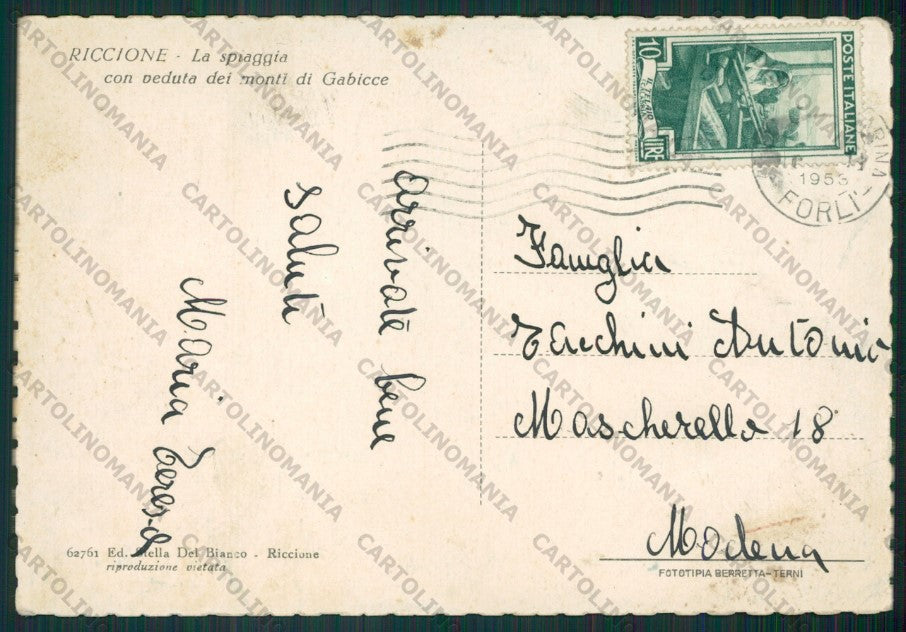 RICCIONE - La spiaggia
con veduta dei monti di Gabicce
10
LIRE
POSTE ITALIANE
1953
FORLI'
arrivate bene
saluti
Maria Teresa
Famiglia
Zacchini Antonio
Mascherella 18
Modena
62761 Ed. Stella Del Bianco - Riccione
riproduzione vietata
FOTOTIPIA BERRETTA-TERNI
CARTOLINOMANIA